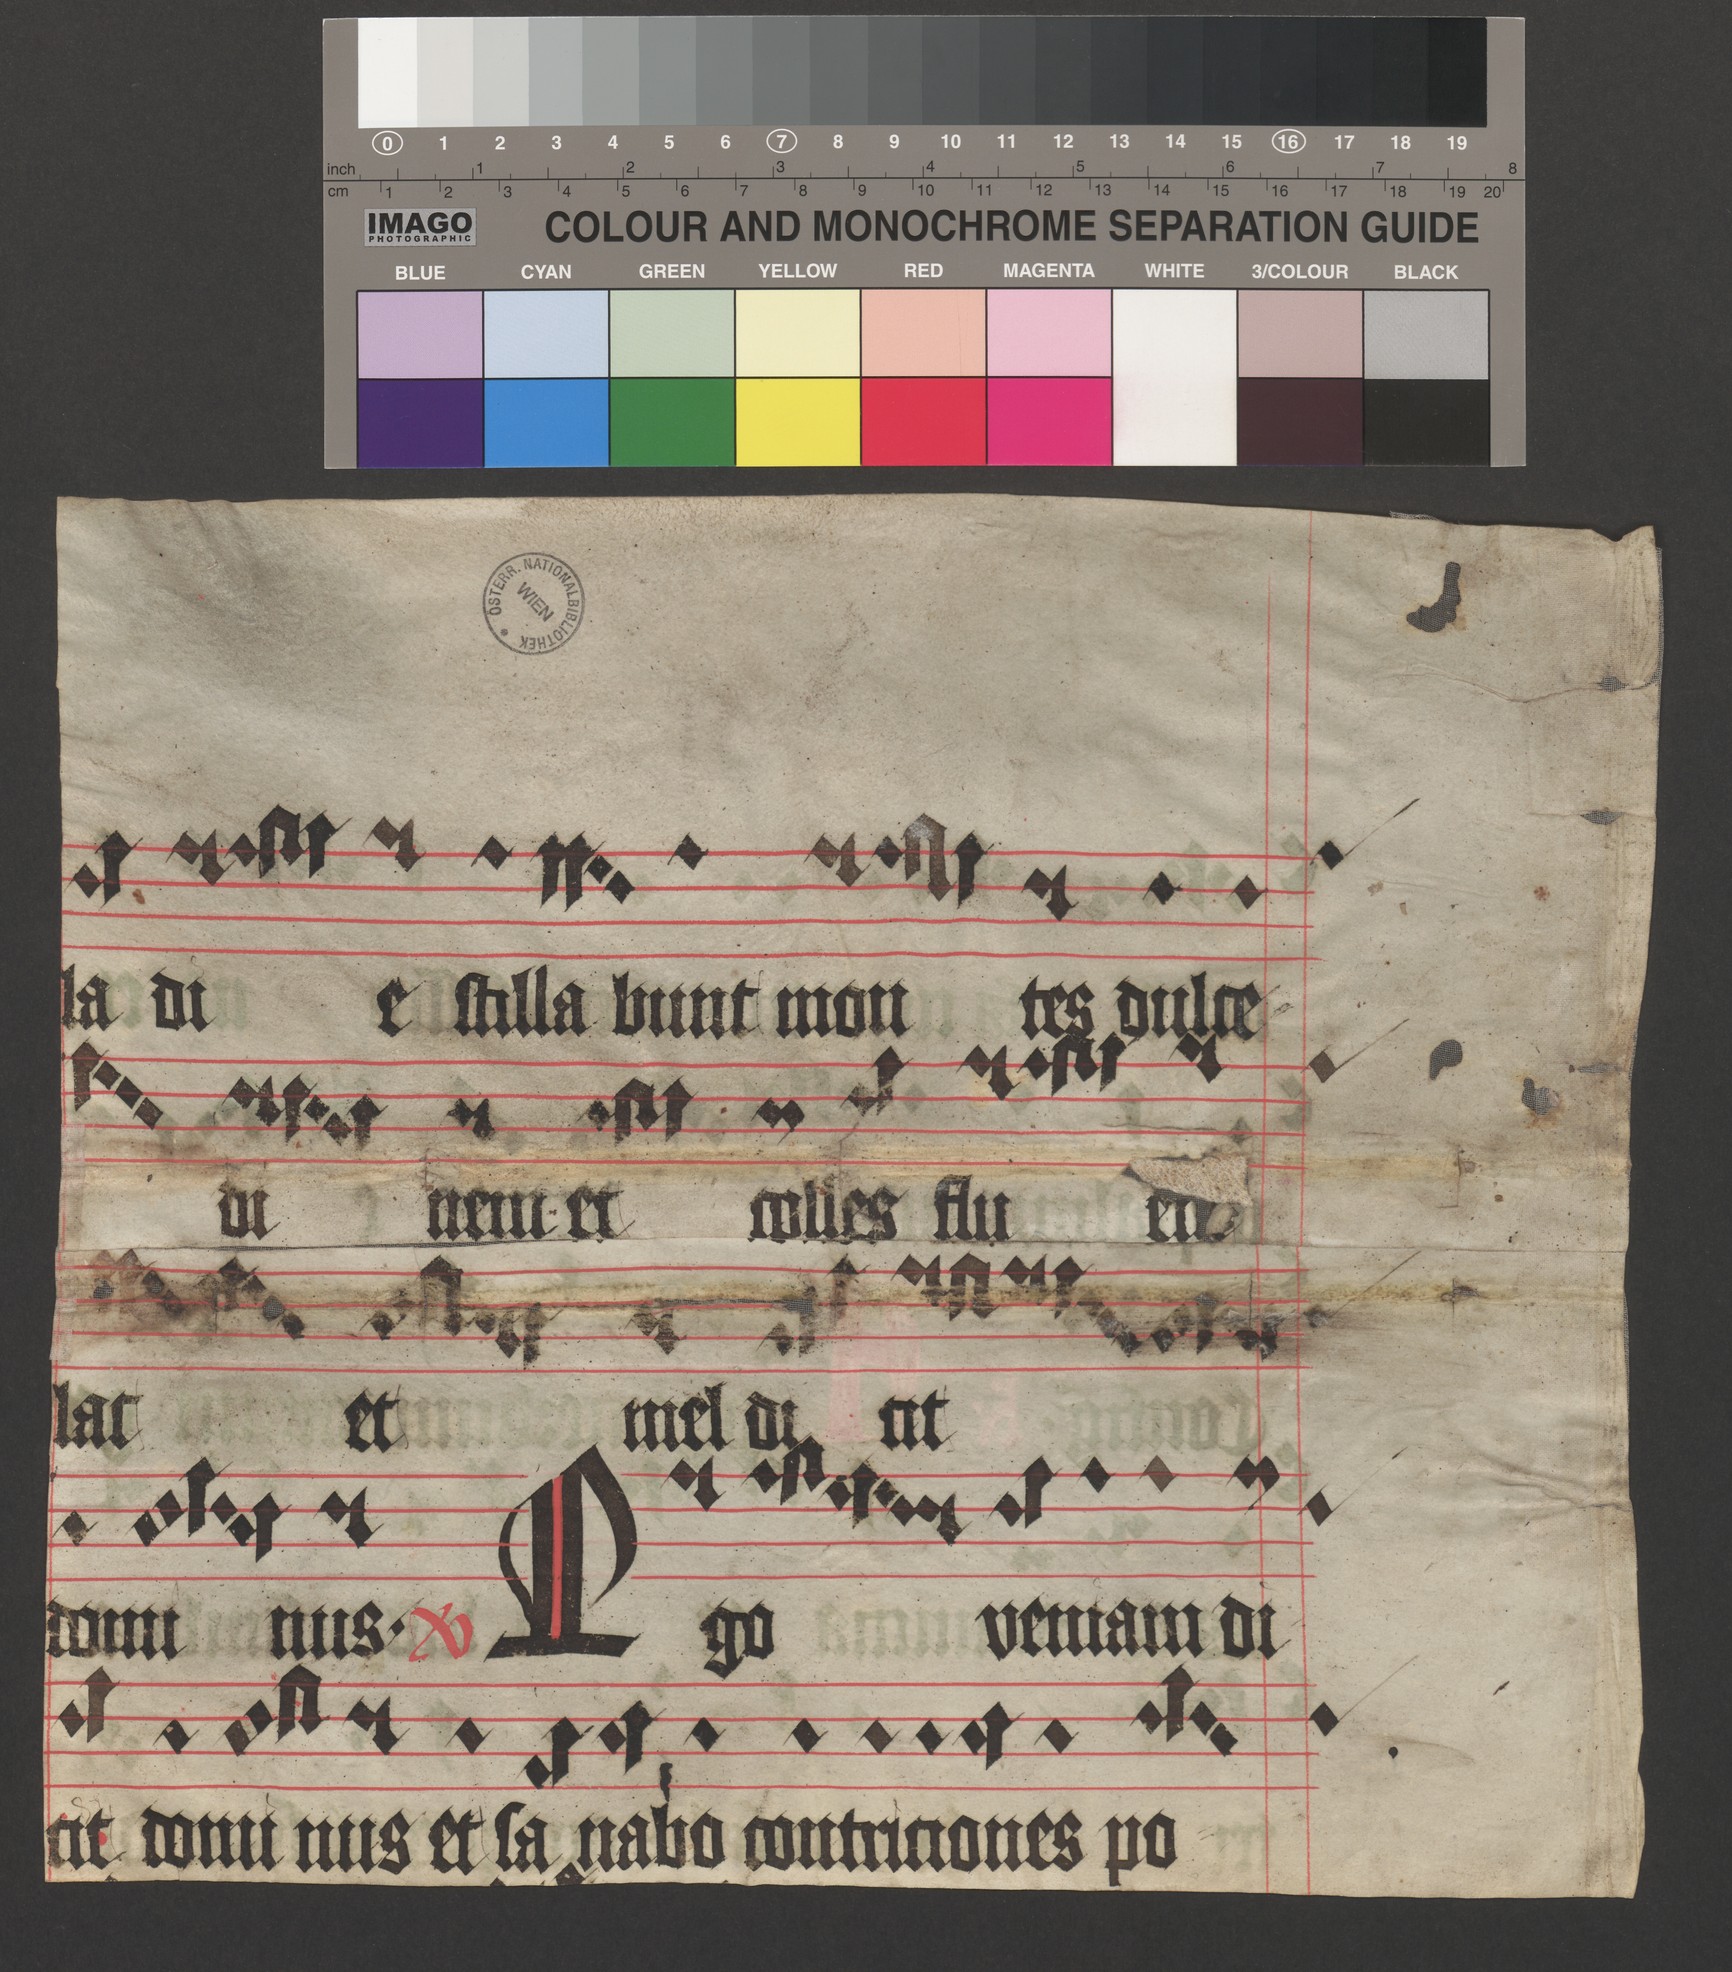 0 1 2 3 4 5 6 7 8 9 10 11 12 13 14 15 16 17 18 19
inch 1 2 3 4 5 6 7 8
cm 1 2 3 4 5 6 7 8 9 10 11 12 13 14 15 16 17 18 19 20
IMAGO PHOTOGRAPHIC COLOUR AND MONOCHROME SEPARATION GUIDE
BLUE CYAN GREEN YELLOW RED MAGENTA WHITE 3/COLOUR BLACK
ÖSTERR. NATIONALBIBLIOTHEK WIEN
la di e stilla bunt mon tes dulce
di nem et colles flu en
lac et mel di cit
domi nus. ꝟ Ego veniam di
cit domi nus et sa nabo contriciones po